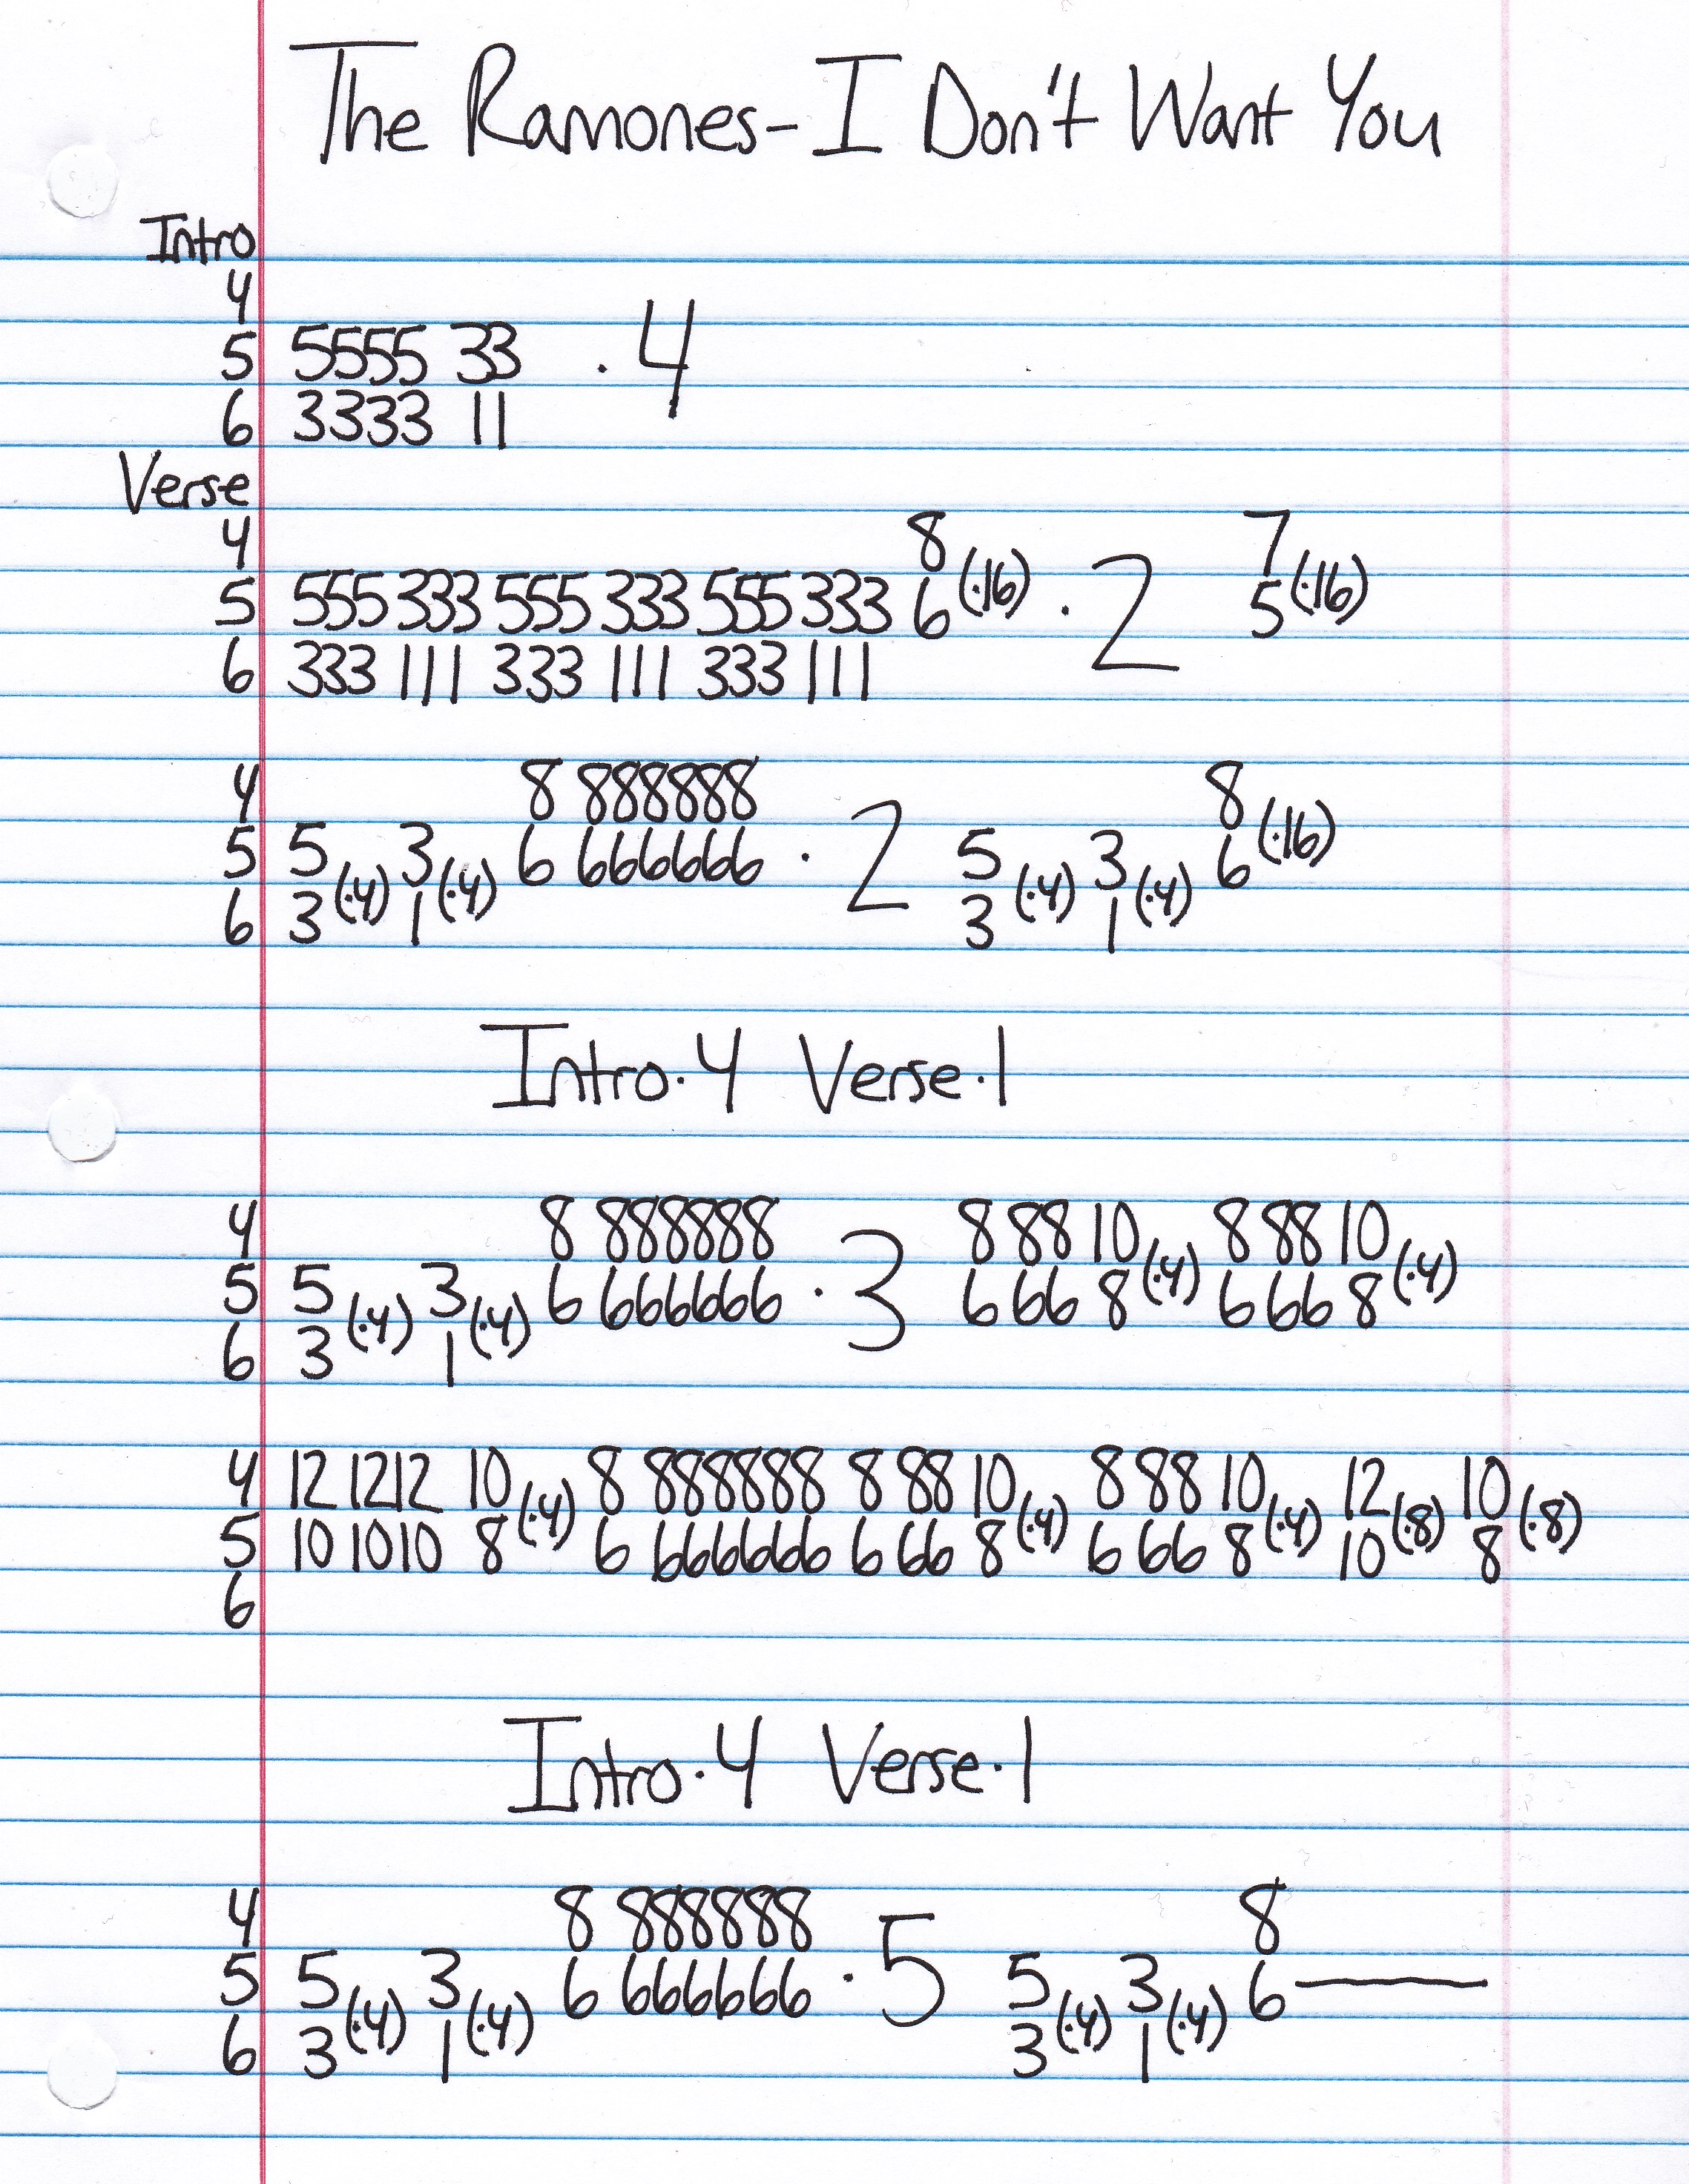 The Ramones - I Don't Want You
Intro
4
5 5555 33 · 4
6 3333 11
Verse
4 8 7
5 555 333 555 333 555 333 6 (·16) · 2 5 (·16)
6 333 111 333 111 333 111
4 8 888888 8
5 5 (·4) 3 (·4) 6 666666 · 2 5 (·4) 3 (·4) 6 (·16)
6 3 1 3 1
Intro·4 Verse·1
4 8 888888 8 88 10 8 88 10
5 5 (·4) 3 (·4) 6 666666 · 3 6 66 8 (·4) 6 66 8 (·4)
6 3 1
4 12 1212 10 (·4) 8 888888 8 88 10 (·4) 8 88 10 (·4) 12 (·8) 10 (·8)
5 10 1010 8 6 666666 6 66 8 6 66 8 10 8
6
Intro·4 Verse·1
4 8 888888 8
5 5 (·4) 3 (·4) 6 666666 · 5 5 (·4) 3 (·4) 6 —
6 3 1 3 1